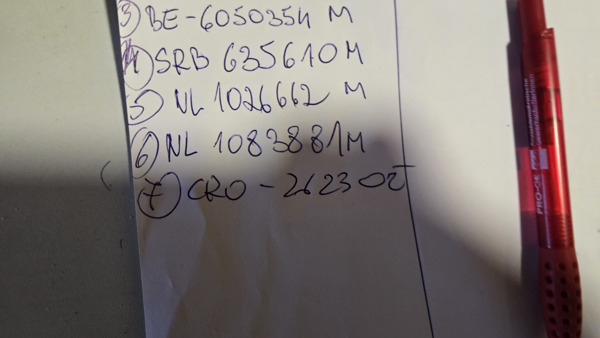 ③ BE-6050354 M
④ SRB 635610 M
⑤ NL 1026662 M
⑥ NL 1083881 M
⑦ CRO - 262302
PRO-GE